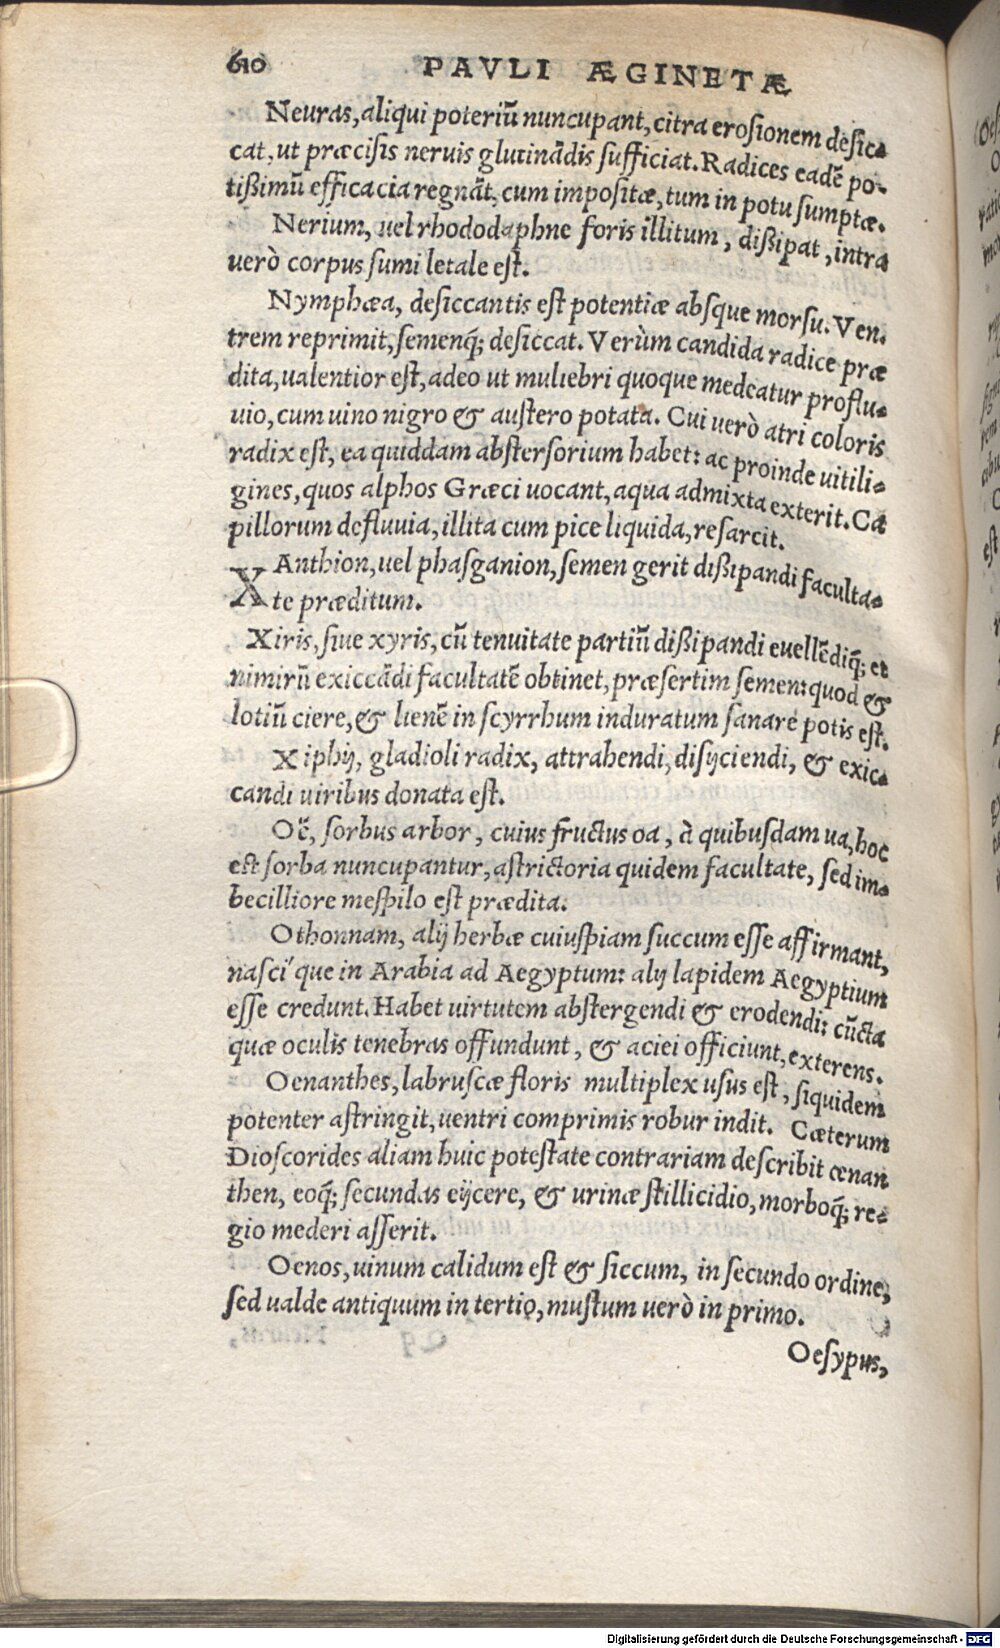 610 PAVLI ÆGINETÆ
Neuras, aliqui poteriũ nuncupant, citra erosionem desic-
cat, ut præcisis neruis glutinãdis sufficiat. Radices eadẽ po-
tißimũ efficacia regnãt, cum impositæ, tum in potu sumptæ.
Nerium, uel rhododaphne foris illitum, dißipat, intra
uerò corpus sumi letale est.
Nymphæa, desiccantis est potentiæ absque morsu. Ven-
trem reprimit, semenq́; desiccat. Verùm candida radice præ
dita, ualentior est, adeo ut muliebri quoque medeatur proflu-
uio, cum uino nigro & austero potata. Cui uerò atri coloris
radix est, ea quiddam abstersorium habet: ac proinde uitili-
gines, quos alphos Græci uocant, aqua admixta exterit. Ca
pillorum defluuia, illita cum pice liquida, resarcit.
XAnthion, uel phasganion, semen gerit dißipandi faculta-
te præditum.
Xiris, siue xyris, cũ tenuitate partiũ dißipandi euellẽdiq́; et
nimirũ exiccãdi facultatẽ obtinet, præsertim semen: quod &
lotiũ ciere, & lienẽ in scyrrhum induratum sanare potis est.
Xiphij, gladioli radix, attrahendi, disijciendi, & exic-
candi uiribus donata est.
Oẽ, sorbus arbor, cuius fructus oa, à quibusdam ua, hoc
est sorba nuncupantur, astrictoria quidem facultate, sed im-
becilliore mespilo est prædita.
Othonnam, alij herbæ cuiuspiam succum esse affirmant,
nasci que in Arabia ad Aegyptum: alij lapidem Aegyptium
esse credunt. Habet uirtutem abstergendi & erodendi: cũcta
quæ oculis tenebras offundunt, & aciei officiunt, exterens.
Oenanthes, labruscæ floris multiplex usus est, siquidem
potenter astringit, uentri comprimis robur indit. Cæterum
Dioscorides aliam huic potestate contrariam describit œnan
then, eoq́; secundas eijcere, & urinæ stillicidio, morboq́; re-
gio mederi asserit.
Oenos, uinum calidum est & siccum, in secundo ordine,
sed ualde antiquum in tertio, mustum uerò in primo.
Oesypus,
Digitalisierung gefördert durch die Deutsche Forschungsgemeinschaft - DFG